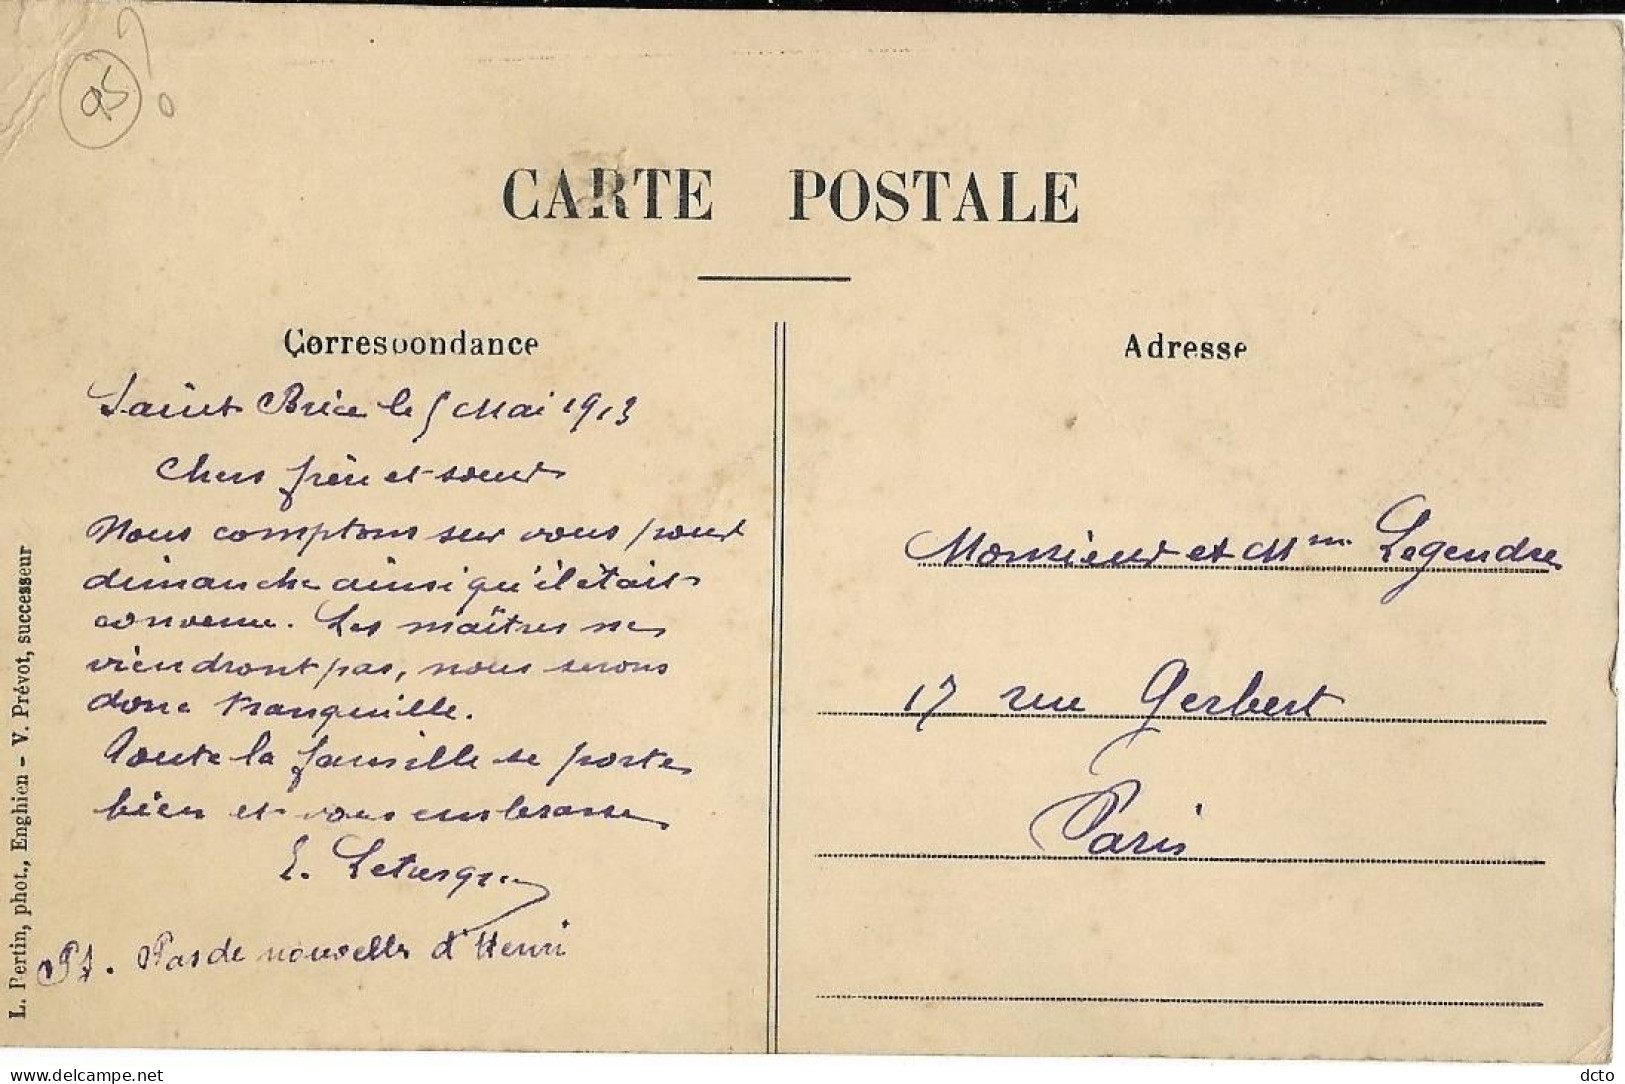 95 ?
CARTE POSTALE
Correspondance
Saint Brice le 5 Mai 1913
Chers frère et sœur
Nous comptons sur vous pour
dimanche ainsi qu'il était
convenu. Les maîtres ne
viendront pas, nous serons
donc tranquille.
Toute la famille se porte
bien et vous embrasse
E.
PS. Pas de nouvelles d'Henri
L. Pertin, phot., Enghien - V. Prévot, successeur
Adresse
Monsieur et Mme Legendre
17 rue Gerbert
Paris
delcampe.net
dcto